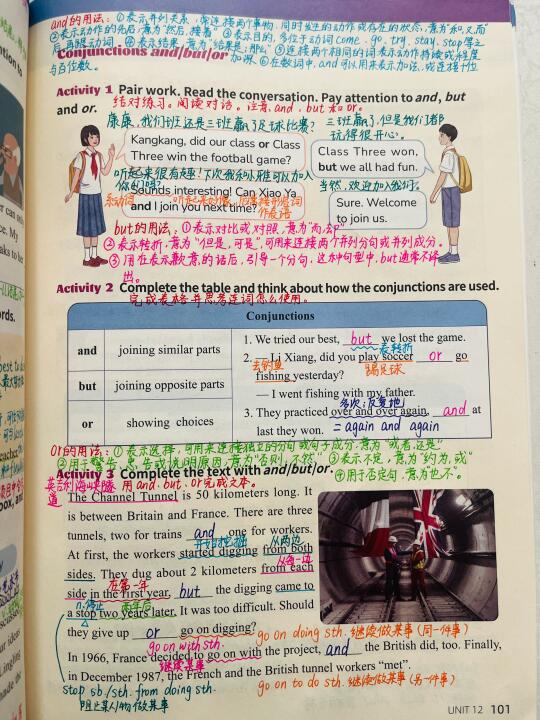 and的用法：①表示并列关系，常连接两个事物、同时发生的动作或存在的状态，意为“和，又，而”
②表示动作的先后，意为“然后，接着”③表示目的，多位于动词come、go、try、stay、stop等之
后，再跟动词。④表示结果，意为“结果是；那么”⑤连接两个相同的词表示动作持续或程度
加深 ⑥在数词中，and可以用来表示加法，或连接十位
与百位数。
Conjunctions and/but/or
Activity 1 Pair work. Read the conversation. Pay attention to and, but
结对练习。阅读对话。注意，and，but 和or。
and or.
康康，我们班还是三班赢了足球比赛？
三班赢了，但是我们都
玩得很开心。
Kangkang, did our class or Class
Three win the football game?
Class Three won,
but we all had fun.
听起来很有趣！下次我和小雅可以加入
你们吗？
Sounds interesting! Can Xiao Ya
and I join you next time?
系动词
听起来
后常接形容词
作表语
当然，欢迎加入我们。
Sure. Welcome
to join us.
but的用法：①表示对比或对照，意为“而，却”
②表示转折，意为“但是，可是”，可用来连接两个并列分句或并列成分。
③用在表示歉意的话后，引导一个分句，这种句型中，but通常不译
出。
Activity 2 Complete the table and think about how the conjunctions are used.
完成表格并思考连词怎么使用。
Conjunctions
and joining similar parts
but joining opposite parts
or showing choices
1. We tried our best, but we lost the game.
表转折
2. — Li Xiang, did you play soccer or go
去钓鱼
踢足球
fishing yesterday?
— I went fishing with my father.
多次；反复地
3. They practiced over and over again, and at
last they won.
= again and again
or的用法：①表示选择，可用来连接独立的分句或句子成分，意为“或者，还是”
②用于警告、忠告或说明原因，意为“否则，不然”③表示不定，意为“约为，或”
④用于否定句，意为“也不”。
Activity 3 Complete the text with and/but/or.
英吉利海峡隧道
用and、but、or完成文本。
The Channel Tunnel is 50 kilometers long. It
is between Britain and France. There are three
tunnels, two for trains and one for workers.
开始挖掘
从两边
At first, the workers started digging from both
sides. They dug about 2 kilometers from each
从每一边
在第一年
side in the first year, but the digging came to
n.停止
两年后
a stop two years later. It was too difficult. Should
they give up or go on digging?
go on doing sth. 继续做某事（同一件事）
go on with sth.
In 1966, France decided to go on with the project, and the British did, too. Finally,
继续某事
in December 1987, the French and the British tunnel workers “met”.
stop sb/sth. from doing sth.
go on to do sth. 继续做某事（另一件事）
阻止某人/物做某事
UNIT 12 101